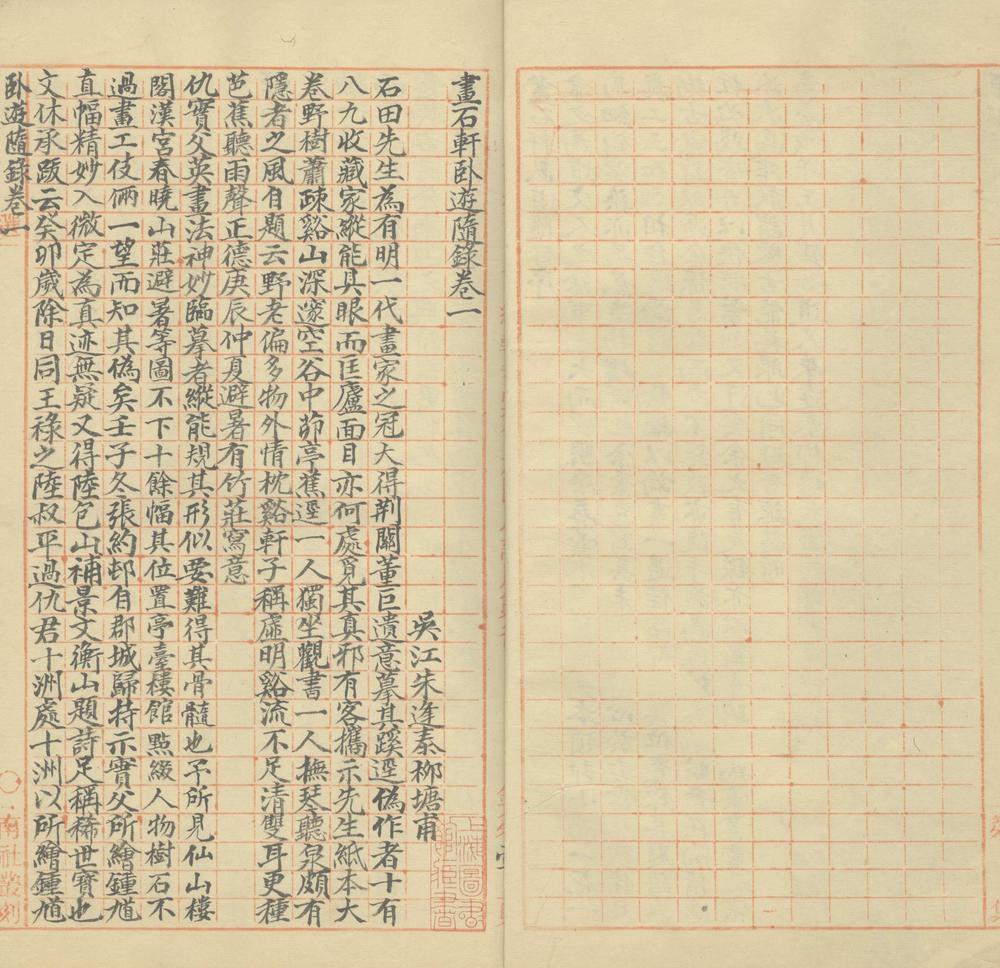 畫石軒臥遊隨錄卷一
吳江朱逢泰柳塘甫
石田先生為有明一代畫家之冠大得荆關董巨遺意摹其蹊逕偽作者十有
八九收藏家縱能具眼而匡廬面目亦何處覓其真邪有客攜示先生紙本大
卷野樹蕭疎谿山深邃空谷中茆亭蕉逕一人獨坐觀書一人撫琴聽泉頗有
隱者之風自題云野老偏多物外情枕谿軒子稱虛明谿流不足清雙耳更種
芭蕉聽雨聲正德庚辰仲夏避暑有竹莊寫意
仇實父英畫法神妙臨摹者縱能規其形似要難得其骨髓也予所見仙山樓
閣漢宮春曉山莊避暑等圖不下十餘幅其位置亭臺樓館點綴人物樹石不
過畫工伎倆一望而知其偽矣壬子冬張約邨自郡城歸持示實父所繪鍾馗
直幅精妙入微定為真迹無疑又得陸包山補景文衡山題詩足稱稀世寶也
文休承跋云癸卯歲除日同王祿之陸叔平過仇君十洲處十洲以所繪鍾馗
臥遊隨錄卷一
一
南社叢刻
上海圖書館藏書